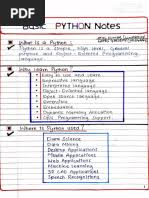 Basic PYTHON Notes
What is a Python :
Python is a simple, high level, general
purpose and object-oriented programming
language.
Why Learn Python?
Easy to use and Learn
Expressive Language
Interpreted Language
Object-Oriented Language
Open Source Language
Extensible
Learn Standard Library
GUI Programming Support
Where is Python used?
Data Science
Data Mining
Desktop Applications
Mobile Applications
Web Applications
Machine Learning
3D CAD Applications
Speech Recognitions